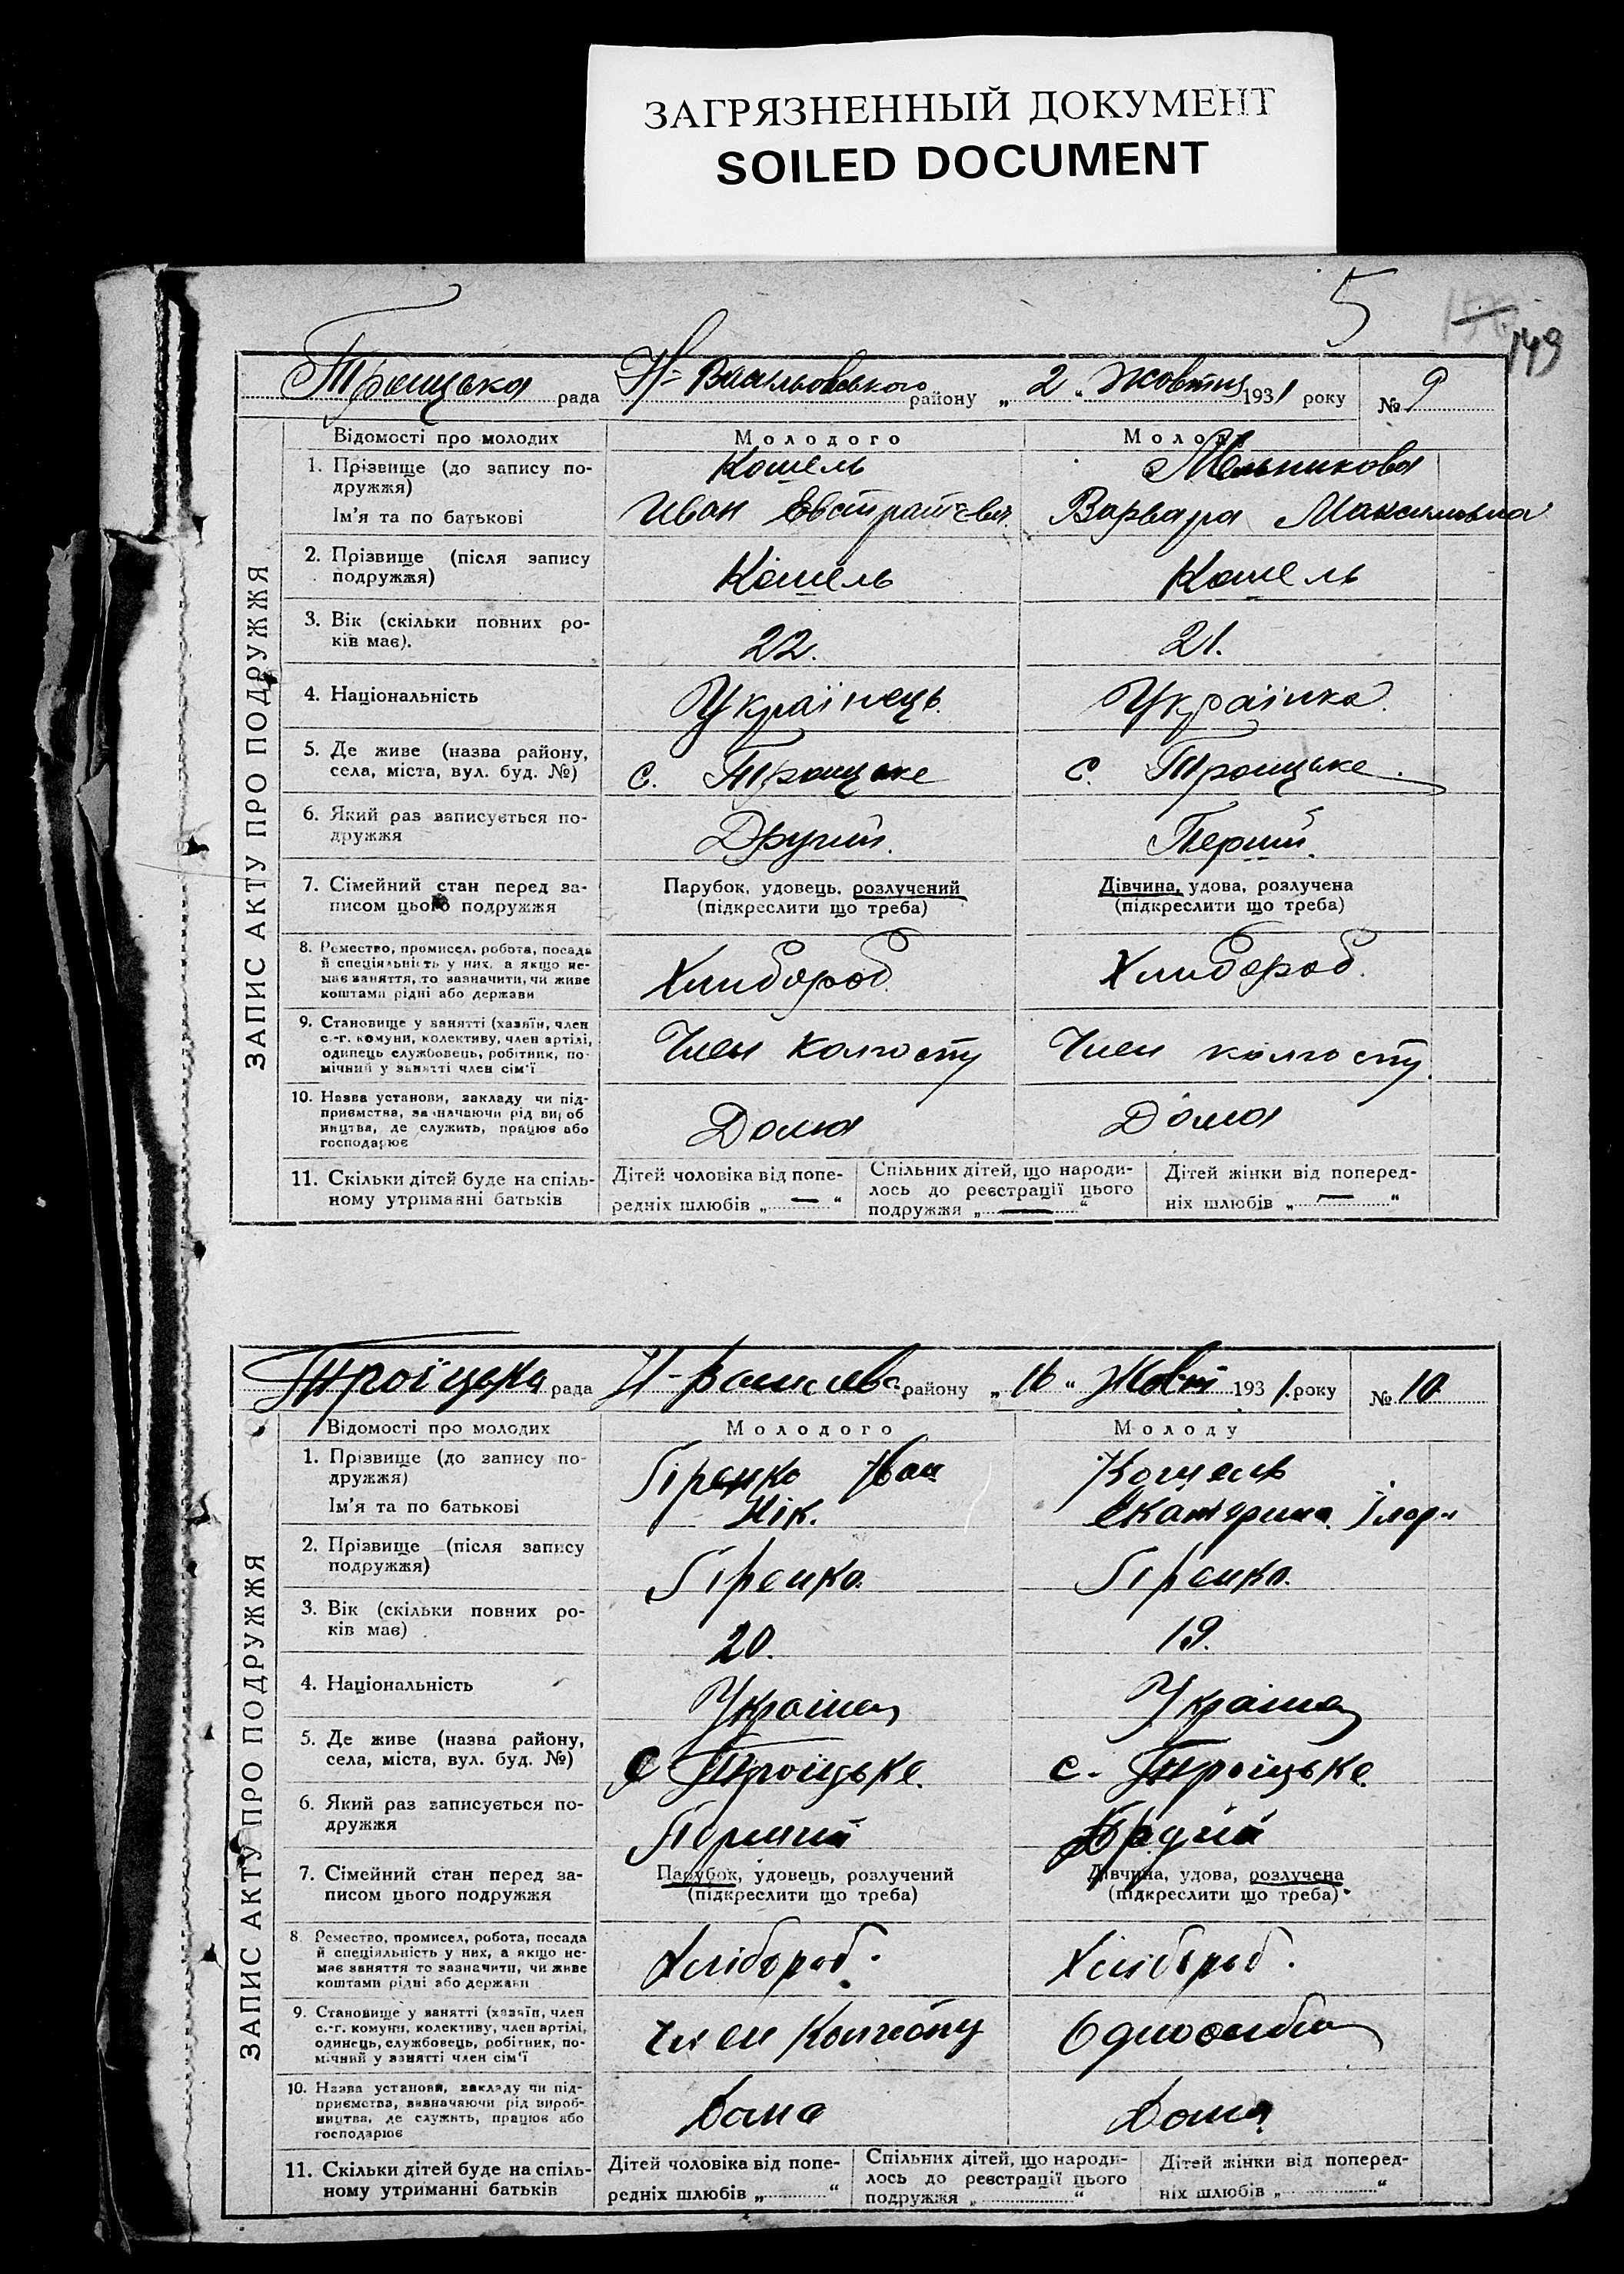 ЗАГРЯЗНЕННЫЙ ДОКУМЕНТ
SOILED DOCUMENT
5
149
Троицька рада Н-Васильовського району „2„ жовтня 1931 року № 9
ЗАПИС АКТУ ПРО ПОДРУЖЖЯ
Відомості про молодих Молодого Молоду
1. Прізвище (до запису по-
дружжя) Кошель Мельникова
Ім'я та по батькові Иван Варвара Максимовна
2. Прізвище (після запису
подружжя) Кошель Кошель
3. Вік (скільки повних ро-
ків має). 22. 21.
4. Національність Українець. Українка.
5. Де живе (назва району,
села, міста, вул. буд. №) с. Троицьке с. Троицьке.
6. Який раз записується по-
дружжя Другий. Перший.
7. Сімейний стан перед за-
писом цього подружжя
Парубок, удовець, розлучений
(підкреслити що треба)
Дівчина, удова, розлучена
(підкреслити що треба)
8. Ремество, промисел, робота, посада
й спеціяльність у них, а якщо не-
має заняття, то зазначити, чи живе
коштами рідні або держави
Хлибороб. Хлибороб.
9. Становище у занятті (хазяїн, член
с.-г. комуни, колективу, член артілі,
одинець службовець, робітник, по-
мічний у занятті член сім'ї
Член колгоспу Член колгоспу.
10. Назва установи, закладу чи під-
приємства, зазначаючи рід вироб
ництва, де служить, працює або
господарює
Дома Дома
11. Скільки дітей буде на спіль-
ному утриманні батьків
Дітей чоловіка від попе-
редніх шлюбів „ — “
Спільних дітей, що народи-
лось до реєстрації цього
подружжя „ — “
Дітей жінки від поперед-
ніх шлюбів „ — “
Троїцька рада району „16„ Жовт 1931. року № 10
ЗАПИС АКТУ ПРО ПОДРУЖЖЯ
Відомості про молодих Молодого Молоду
1. Прізвище (до запису по-
дружжя) Гіренко Іван Кошель
Ім'я та по батькові Нік. Екатерина Ілар
2. Прізвище (після запису
подружжя) Гіренко. Гіренко.
3. Вік (скільки повних ро-
ків має) 20. 19.
4. Національність
5. Де живе (назва району,
села, міста, вул. буд. №) с Троїцьке. с. Троїцьке.
6. Який раз записується по-
дружжя Перший
7. Сімейний стан перед за-
писом цього подружжя
Парубок, удовець, розлучений
(підкреслити що треба)
Дівчина, удова, розлучена
(підкреслити що треба)
8. Ремество, промисел, робота, посада
й спеціяльність у них, а якщо не-
має заняття то зазначити, чи живе
коштами рідні або держави
Хлібороб. Хлібороб.
9. Становище у занятті (хазяїн, член
с.-г. комуни, колективу, член артілі,
одинець, службовець, робітник, по-
мічний у занятті член сім'ї
Член Колгоспу
10. Назва установи, закладу чи під-
приємства, зазначаючи рід вироб-
ництва, де служить, працює або
господарює
Дома Дома
11. Скільки дітей буде на спіль-
ному утриманні батьків
Дітей чоловіка від попе-
редніх шлюбів „ “
Спільних дітей, що народи-
лось до реєстрації цього
подружжя „ “
Дітей жінки від поперед-
ніх шлюбів „ “